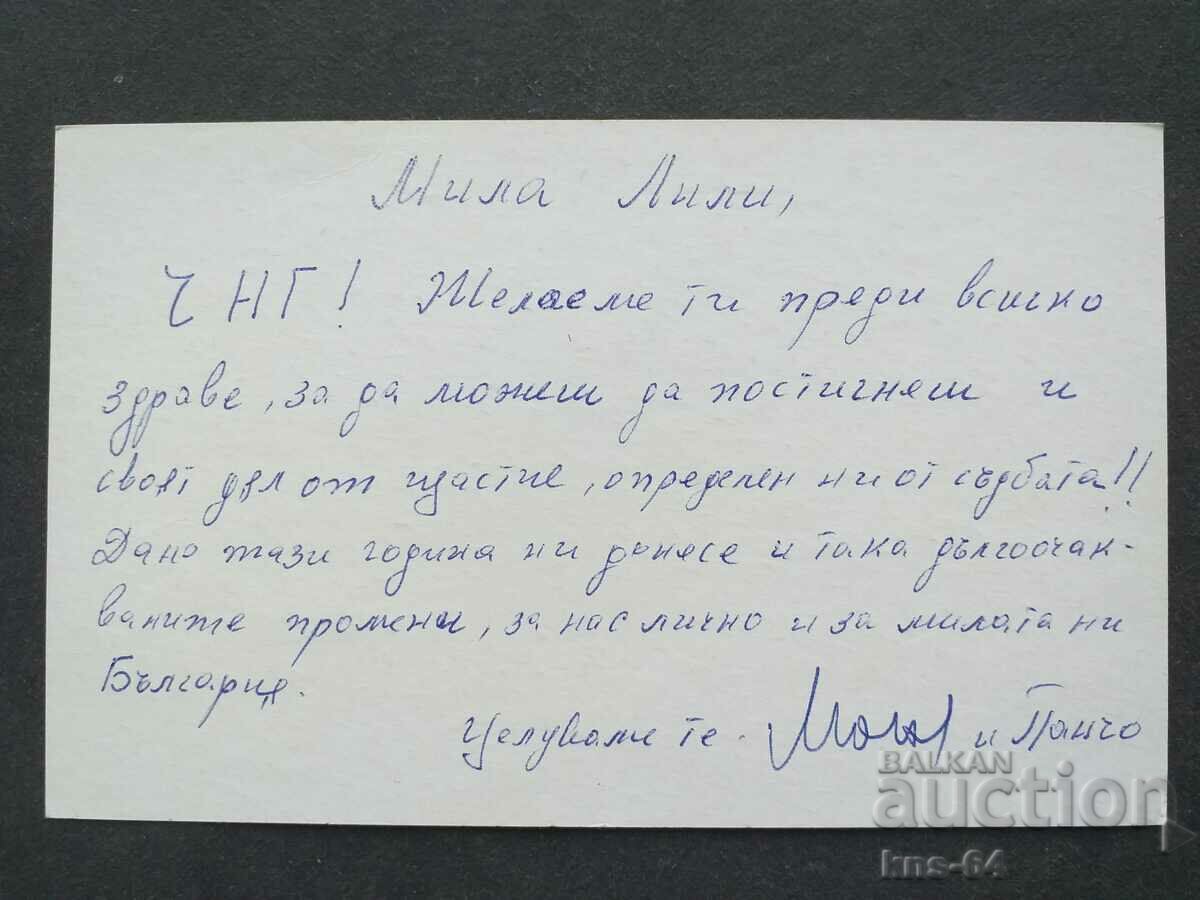 Мила Лили,
ЧНГ! Желаеме ти преди всичко
здраве, за да можеш да постигнеш и
своят дял от щастие, определен ни от съдбата!!
Дано тази година ни донесе и така дългоочак-
ваните промени, за нас лично и за милата ни
България.
Целуваме те - и Панчо
BALKAN
auction
kns-64